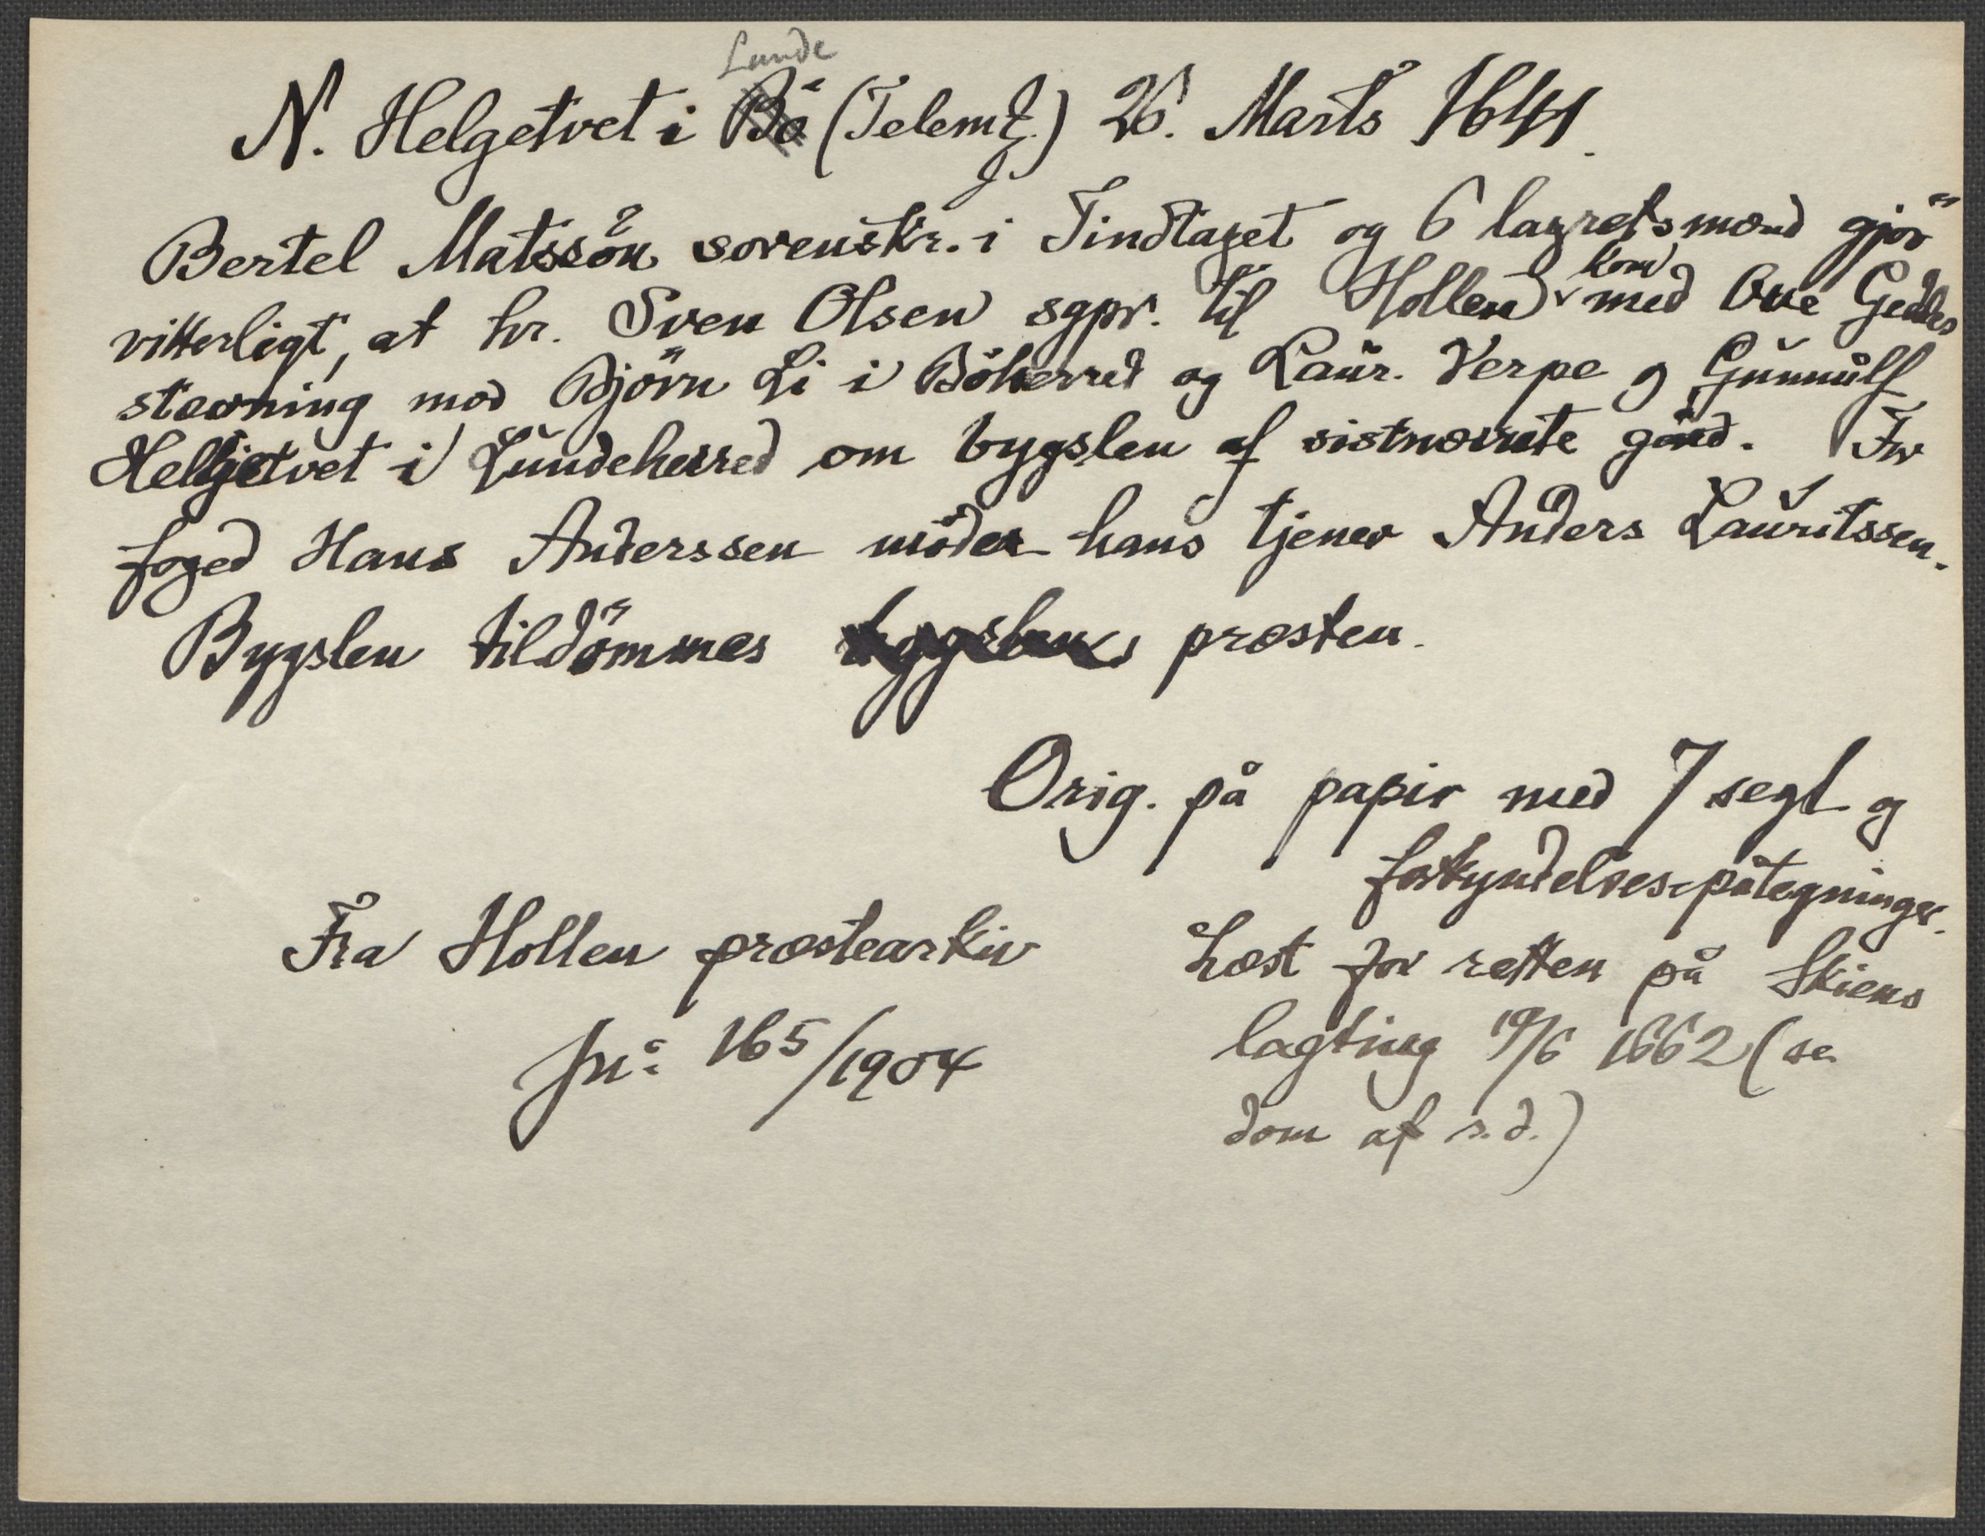 Lunde
N. Helgetvet i Bö (Telemk.) 26. Marts 1641.
Bertel Matssön sorenskr. i Tindlaget og 6 lagretsmænd gjör
vitterligt, at hr. Sven Olsen sgpr. til Hollen kom med Ove Geddes
stævning mod Björn Li i Böherred og Laur. Verpe og Gunnulf
Helgetvet i Lundeherred om bygslen af sistnævnte gård. For
foged Hans Anderssen möder hans tjener Anders Lauritssen.
Bygslen tildömmes bygslens præsten.
Orig. på papir med 7 segl og
forkyndelses-påtegninger.
Fra Hollen præstearkiv
Læst for retten på Skiens
jn: 165/1904
lagting 19/6 1662 (se
dom af s.d.)